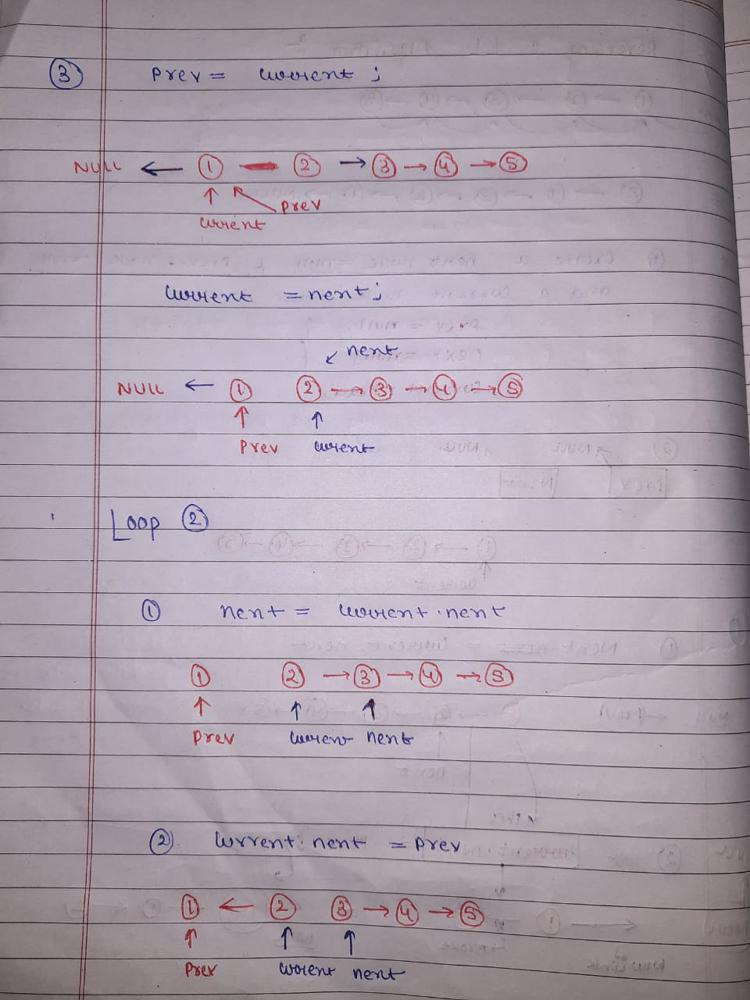 ③ Prev = current ;
NULL ← ① — ② → ③ → ④ → ⑤
↑ prev
current
current = next;
↙ next
NULL ← ① ② → ③ → ④ → ⑤
↑ ↑
Prev current
Loop ②
① next = current.next
① ② → ③ → ④ → ⑤
↑ ↑ ↑
Prev current next
② current.next = prev
① ← ② ③ → ④ → ⑤
↑ ↑ ↑
Prev current next